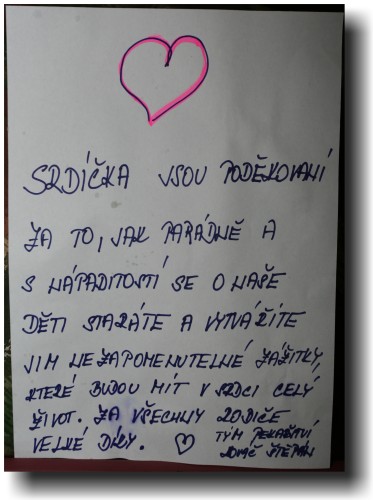 SRDÍČKA JSOU PODĚKOVANÍ
ZA TO, JAK PARÁDNĚ A
S NÁPADITOSTÍ SE O NAŠE
DĚTI STARÁTE A VYTVÁŘÍTE
JIM NEZAPOMENUTELNÉ ZÁŽITKY,
KTERÉ BUDOU MÍT V SRDCI CELÝ
ŽIVOT. ZA VŠECHNY RODIČE
VELKÉ DÍKY. TÝM PEKAŘSTVÍ
ŠTĚPÁN